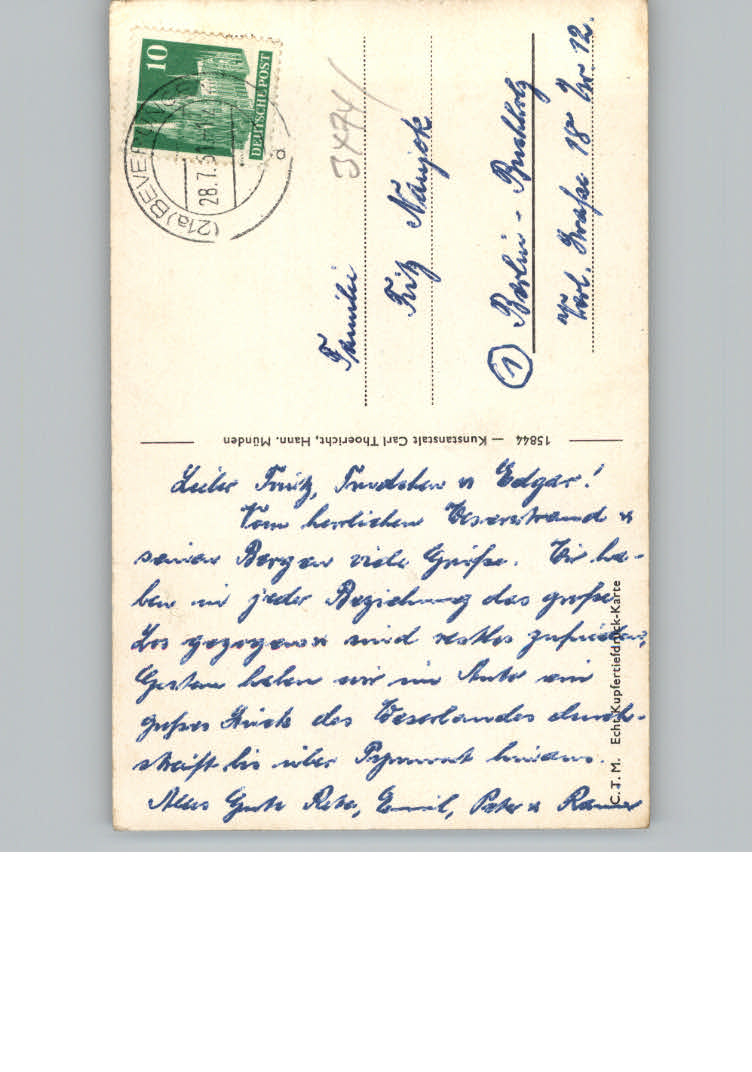 10
DEUTSCHE POST
(21a) BEVERUNGEN
28.7.5
a
3474/
Familie
Fritz Naujok
(1) Berlin - Buchholz
Str. 18 Nr. 12.
15844 — Kunstanstalt Carl Thoericht, Hann. Münden
Lieber Fritz, Trudchen u Edgar!
Vom herrlichen Weserstrand u
seinen Bergen viele Grüße. Wir ha-
ben in jeder Beziehung das große
Los gezogen u sind restlos zufrieden.
Gestern haben wir im Auto ein
großes Stück des Weserlandes durch-
streift bis über Pyrmont hinaus.
Alles Gute Emil, Peter u
C.T.M. Echt Kupfertiefdruck-Karte